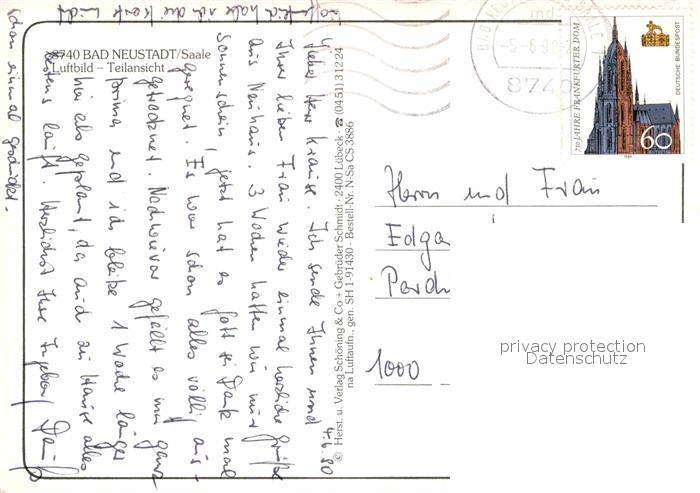 8740 BAD NEUSTADT/Saale
Luftbild – Teilansicht
4.6.90
Lieber Herr Krause. Ich sende Ihnen und
Ihrer lieben Frau wieder einmal herzliche Grüße
aus Neuhaus. 3 Wochen hatten wir nur
Sonnenschein, jetzt hat es Gott sei Dank mal
geregnet. Es war schon alles völlig aus-
getrocknet. Nach wie vor gefällt es mir ganz
prima und ich bleibe 1 Woche länger
hier als geplant, da auch zu Hause alles
bestens läuft. Herzlichst Ihre Ingeborg
Hoffentlich habe ich die Karte nicht
schon einmal geschickt.
© Herst. u. Verlag Schöning & Co + Gebrüder Schmidt · 2400 Lübeck · ☎ (0451) 31224
na Luftaufn., gen. SH 1-91430 - Bestell-Nr. N-Sa CS 3886
BAD NEUSTADT SAALE
md
-5.-6.90
8740
750 JAHRE FRANKFURTER DOM
DEUTSCHE BUNDESPOST
60
1989
Herrn und Frau
Edga
Perd
1000
privacy protection
Datenschutz